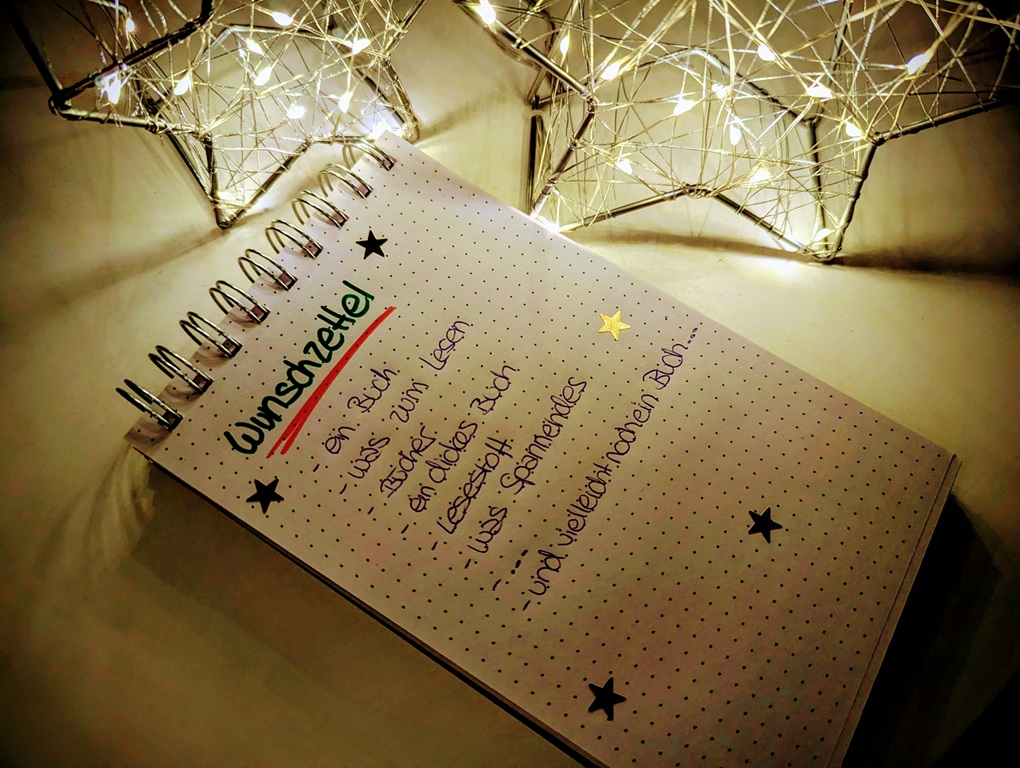 Wunschzettel
- ein Buch
- was zum Lesen
- Bücher
- ein dickes Buch
- Lesestoff
- was Spannendes
- ...
- und vielleicht noch ein Buch...